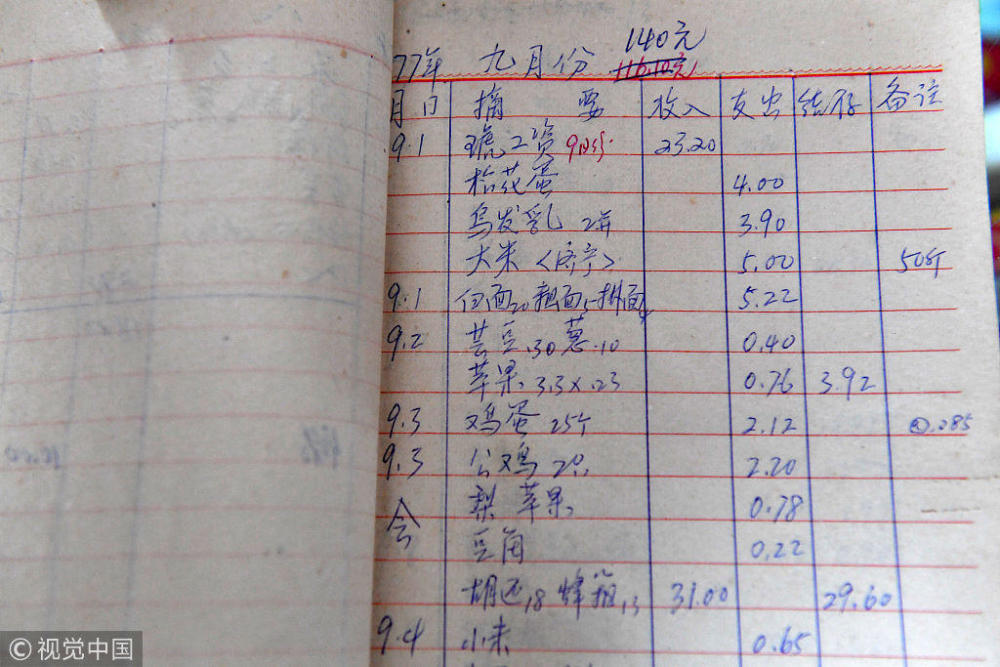 77年 九月份 140元
116.10元
月日 摘 要 收入 支出 结存 备注
9.1 工资 23.20
松花蛋 4.00
乌发乳 2并 3.90
大米 5.00 50斤
9.1 白面20 粗面5 挂面4 5.22
9.2 芸豆.30 葱.10 0.40
苹果 3.3×.23 0.76 3.92
9.3 鸡蛋 25个 2.12 @.085
9.3 公鸡 2只 2.20
梨 苹果 0.78
豆角 0.22
胡还18 蜂箱13 31.00 29.60
9.4 小米 0.65
© 视觉中国